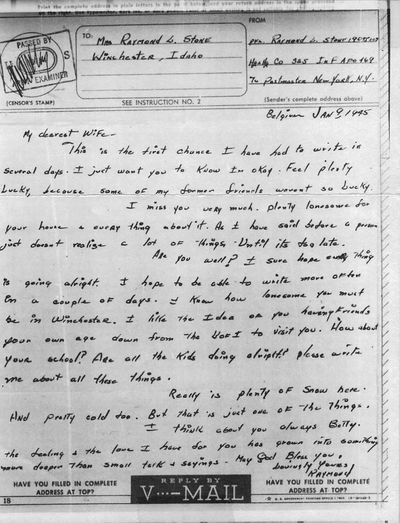 Print the complete address in plain letters in the panel below, and your return address in the space provided
PASSED BY
EXAMINER
S
(CENSOR'S STAMP)
TO:
Mrs Raymond L. Stone
Winchester, Idaho
SEE INSTRUCTION NO. 2
FROM
Pvt. Raymond L. Stone
Hq Co 365 Inf APO
To Postmaster New York, N.Y.
(Sender's complete address above)
Belgium Jan 9 1945
My dearest Wife-
This is the first chance I have had to write in
several days. I just want you to know Im okay. Feel plenty
lucky, because some of my former friends werent so lucky.
I miss you very much. plenty lonesome for
your house & every thing about it. As I have said before a person
just doesnt realize a lot of things, Until its too late.
Are you well? I sure hope every thing
is going alright. I hope to be able to write more often
in a couple of days. I know how lonesome you must
be in Winchester. I like the Idea of you having friends
your own age down from the U of I to visit you. How about
your school? Are all the kids doing alright? please write
me about all these things.
Really is plenty of snow here.
And pretty cold too. But that is just one of the things.
I think about you always Betty.
the feeling & the love I have for you has grown into something
more deeper than small talk & sayings. May God Bless you.
Lovingly yours
Raymond
HAVE YOU FILLED IN COMPLETE
ADDRESS AT TOP?
REPLY BY
V···—MAIL
HAVE YOU FILLED IN COMPLETE
ADDRESS AT TOP?
18
U. S. GOVERNMENT PRINTING OFFICE